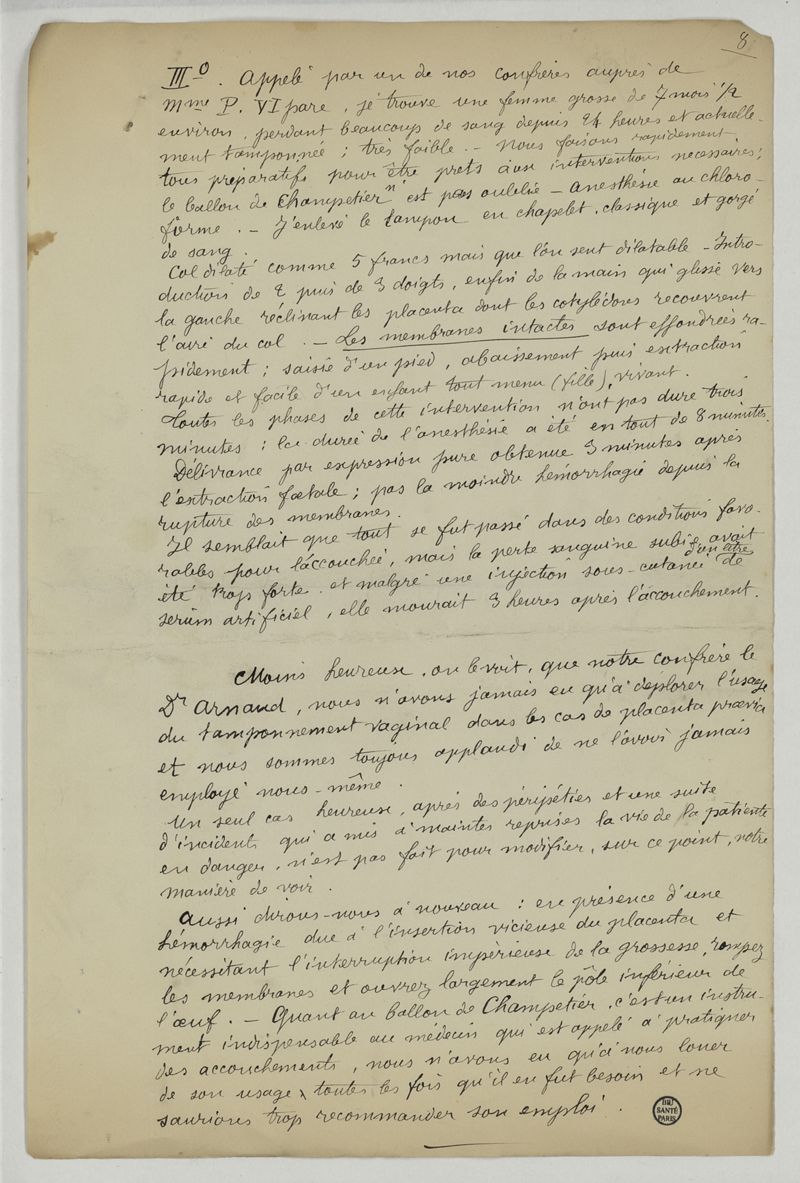 8
IIIo. Appelé par un de nos confrères auprès de
Mme P. VIpare, je trouve une femme grosse de 7 mois 1/2
environ, perdant beaucoup de sang depuis 24 heures et actuelle-
ment tamponnée ; très faible. – Nous faisons rapidement
tous préparatifs pour être prêts aux interventions nécessaires ;
le ballon de Champetier n'est pas oublié – Anesthésie au chloro-
forme. – J'enlève le tampon en chapelet, classique et gorgé
de sang.
Col dilaté comme 5 francs mais que l'on sent dilatable – Intro-
duction de 2 puis de 3 doigts, enfin de la main qui glisse vers
la gauche réclinant les placenta dont les cotylédons recouvrent
l'aire du col. – Les membranes intactes sont effondrées ra-
pidement ; saisie d'un pied, abaissement puis extraction
rapide et facile d'un enfant tout menu (fille), vivant.
Toutes les phases de cette intervention n'ont pas duré trois
minutes ; la durée de l'anesthésie a été en tout de 8 minutes.
Délivrance par expression pure obtenue 3 minutes après
l'extraction fœtale ; pas la moindre hémorrhagie depuis la
rupture des membranes.
Il semblait que tout se fut passé dans des conditions favo-
rables pour l'accouchée, mais la perte sanguine subie avait
été trop forte et malgré une injection sous-cutanée d'un litre de
serum artificiel, elle mourait 3 heures après l'accouchement.
Moins heureux, on le voit, que notre confrère le
Dr Arnaud, nous n'avons jamais eu qu'à déplorer l'usage
du tamponnement vaginal dans les cas de placenta prævia
et nous sommes toujours applaudi de ne l'avoir jamais
employé nous-même.
Un seul cas heureux, après des péripéties et une suite
d'incidents qui a mis à maintes reprises la vie de la patiente
en danger, n'est pas fait pour modifier, sur ce point, notre
manière de voir.
Aussi dirons-nous à nouveau : en présence d'une
hémorrhagie due à l'insertion vicieuse du placenta et
nécessitant l'interruption impérieuse de la grossesse, rompez
les membranes et ouvrez largement le pôle inférieur de
l'œuf. – Quant au ballon de Champetier, c'est un instru-
ment indispensable au médecin qui est appelé à pratiquer
des accouchements, nous n'avons eu qu'à nous louer
de son usage toutes les fois qu'il en fut besoin et ne
saurions trop recommander son emploi.
BIU
SANTÉ
PARIS